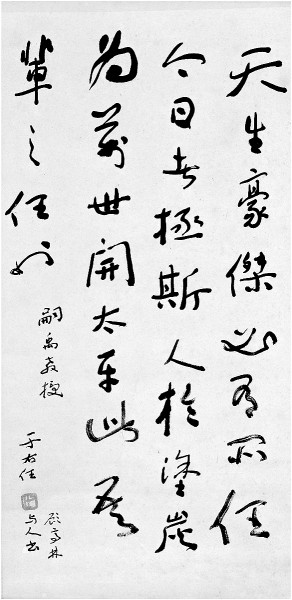 天生豪傑必有所任
今日者拯斯人於塗炭
為萬世開太平此吾
輩之任也
嗣禹教授
于右任
顧亭林
与人书